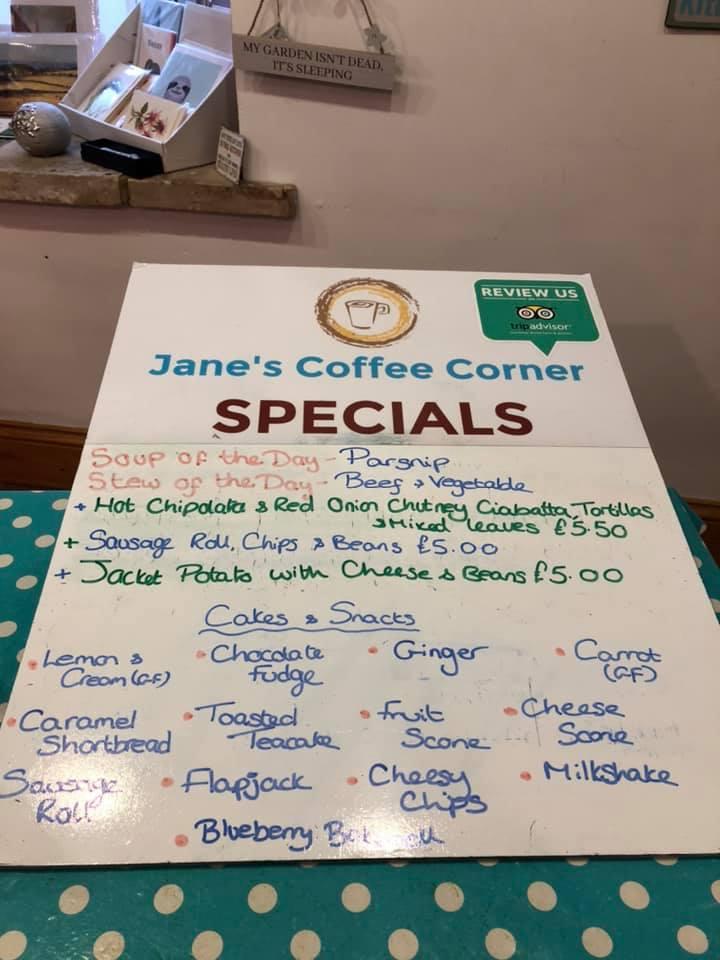 MY GARDEN ISN'T DEAD,
IT'S SLEEPING
REVIEW US
tripadvisor
Jane's Coffee Corner
SPECIALS
Soup of the Day - Parsnip
Stew of the Day - Beef & Vegetable
+ Hot Chipolata & Red Onion Chutney Ciabatta, Tortillas
& Mixed leaves £5.50
+ Sausage Roll, Chips & Beans £5.00
+ Jacket Potato with Cheese & Beans £5.00
Cakes & Snacks
• Lemon & • Chocolate • Ginger • Carrot
Cream (GF) fudge (GF)
• Caramel • Toasted • fruit • Cheese
Shortbread Teacake Scone Scone
Sausage • Flapjack • Cheesy • Milkshake
Roll Chips
• Blueberry